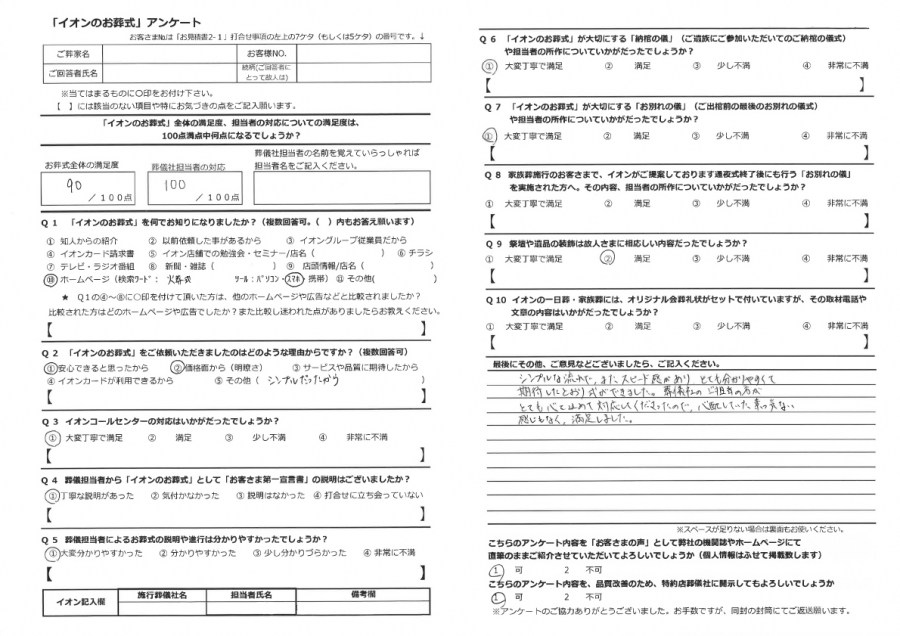 「イオンのお葬式」アンケート
お客さまNo.は「お見積書2-1」打合せ事項の左上の7ケタ（もしくは5ケタ）の番号です。↓
ご葬家名 お客様NO.
ご回答者氏名 続柄(ご回答者にとって故人は)
※当てはまるものに〇印をお付け下さい。
【 】には該当のない項目や特にお気づきの点をご記入願います。
「イオンのお葬式」全体の満足度、担当者の対応についての満足度は、
100点満点中何点になるでしょうか？
お葬式全体の満足度 葬儀社担当者の対応 葬儀社担当者の名前を覚えていらっしゃれば
担当者名をご記入ください。
90 ／100点 100 ／100点
Q１ 「イオンのお葬式」を何でお知りになりましたか？（複数回答可。（ ）内もお答え願います）
① 知人からの紹介 ② 以前依頼した事があるから ③ イオングループ従業員だから
④ イオンカード請求書 ⑤ イオン店舗での勉強会・セミナー/店名（ ） ⑥ チラシ
⑦ テレビ・ラジオ番組 ⑧ 新聞・雑誌（ ） ⑨ 店頭情報/店名（ ）
⑩ ホームページ（検索ワード： ツール：パソコン・スマホ・携帯）⑪ その他( )
★ Q1の④～⑧に〇印を付けて頂いた方は、他のホームページや広告などと比較されましたか？
比較された方はどのホームページや広告でしたか？また比較し迷われた点がありましたらお教えください。
【 】
Q２ 「イオンのお葬式」をご依頼いただきましたのはどのような理由からですか？（複数回答可）
①安心できると思ったから ②価格面から（明瞭さ） ③ サービスや品質に期待したから
④ イオンカードが利用できるから ⑤ その他（ シンプルだったから ）
【 】
Q３ イオンコールセンターの対応はいかがだったでしょうか？
① 大変丁寧で満足 ② 満足 ③ 少し不満 ④ 非常に不満
【 】
Q４ 葬儀担当者から「イオンのお葬式」として「お客さま第一宣言書」の説明はございましたか？
①丁寧な説明があった ② 気付かなかった ③ 説明はなかった ④ 打合せに立ち会っていない
【 】
Q５ 葬儀担当者によるお葬式の説明や進行は分かりやすかったでしょうか？
①大変分かりやすかった ② 分かりやすかった ③ 少し分かりづらかった ④ 非常に不満
【 】
イオン記入欄 施行葬儀社名 担当者氏名 備考欄
Q６ 「イオンのお葬式」が大切にする「納棺の儀」（ご遺族にご参加いただいてのご納棺の儀式）
や担当者の所作についていかがだったでしょうか？
① 大変丁寧で満足 ② 満足 ③ 少し不満 ④ 非常に不満
【 】
Q７ 「イオンのお葬式」が大切にする「お別れの儀」（ご出棺前の最後のお別れの儀式）
や担当者の所作についていかがだったでしょうか？
① 大変丁寧で満足 ② 満足 ③ 少し不満 ④ 非常に不満
【 】
Q８ 家族葬施行のお客さまで、イオンがご提案しております通夜式終了後にも行う「お別れの儀」
を実施された方へ。その内容、担当者の所作についていかがだったでしょうか？
① 大変丁寧で満足 ② 満足 ③ 少し不満 ④ 非常に不満
【 】
Q９ 祭壇や遺品の装飾は故人さまに相応しい内容だったでしょうか？
① 大変丁寧で満足 ② 満足 ③ 少し不満 ④ 非常に不満
【 】
Q10 イオンの一日葬・家族葬には、オリジナル会葬礼状がセットで付いていますが、その取材電話や
文章の内容はいかがだったでしょうか？
① 大変丁寧で満足 ② 満足 ③ 少し不満 ④ 非常に不満
【 】
最後にその他、ご意見などございましたら、ご記入ください。
シンプルな流れで、またスピード感があり とても分かりやすくて
期待したとおり式ができました。葬儀社のご担当の方が
とても心を込めて対応してくださったので、心配していた素っ気ない
感じもなく、満足しました。
※スペースが足りない場合は裏面もお使いください。
こちらのアンケート内容を「お客さまの声」として弊社の機関誌やホームページにて
直筆のままご紹介させていただいてよろしいでしょうか（個人情報はふせて掲載致します）
1 可 2 不可
こちらのアンケート内容を、品質改善のため、特約店葬儀社に開示してもよろしいでしょうか
1 可 2 不可
※アンケートのご協力ありがとうございました。お手数ですが、同封の封筒にてご返送願います。